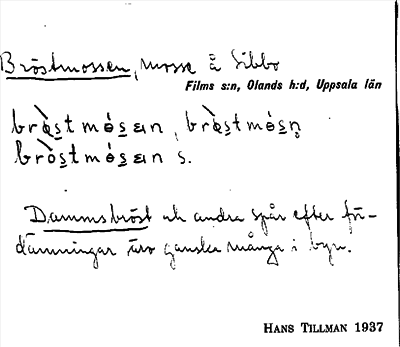 Bröstmossen, mosse å Sibbo
Films s:n, Olands h:d, Uppsala län
brö̀stmósεn, brö̀stmósn̥
brö̀stmósεn s.
Dammsbröst och andra spår efter för-
dämningar äro ganska många i byn.
HANS TILLMAN 1937